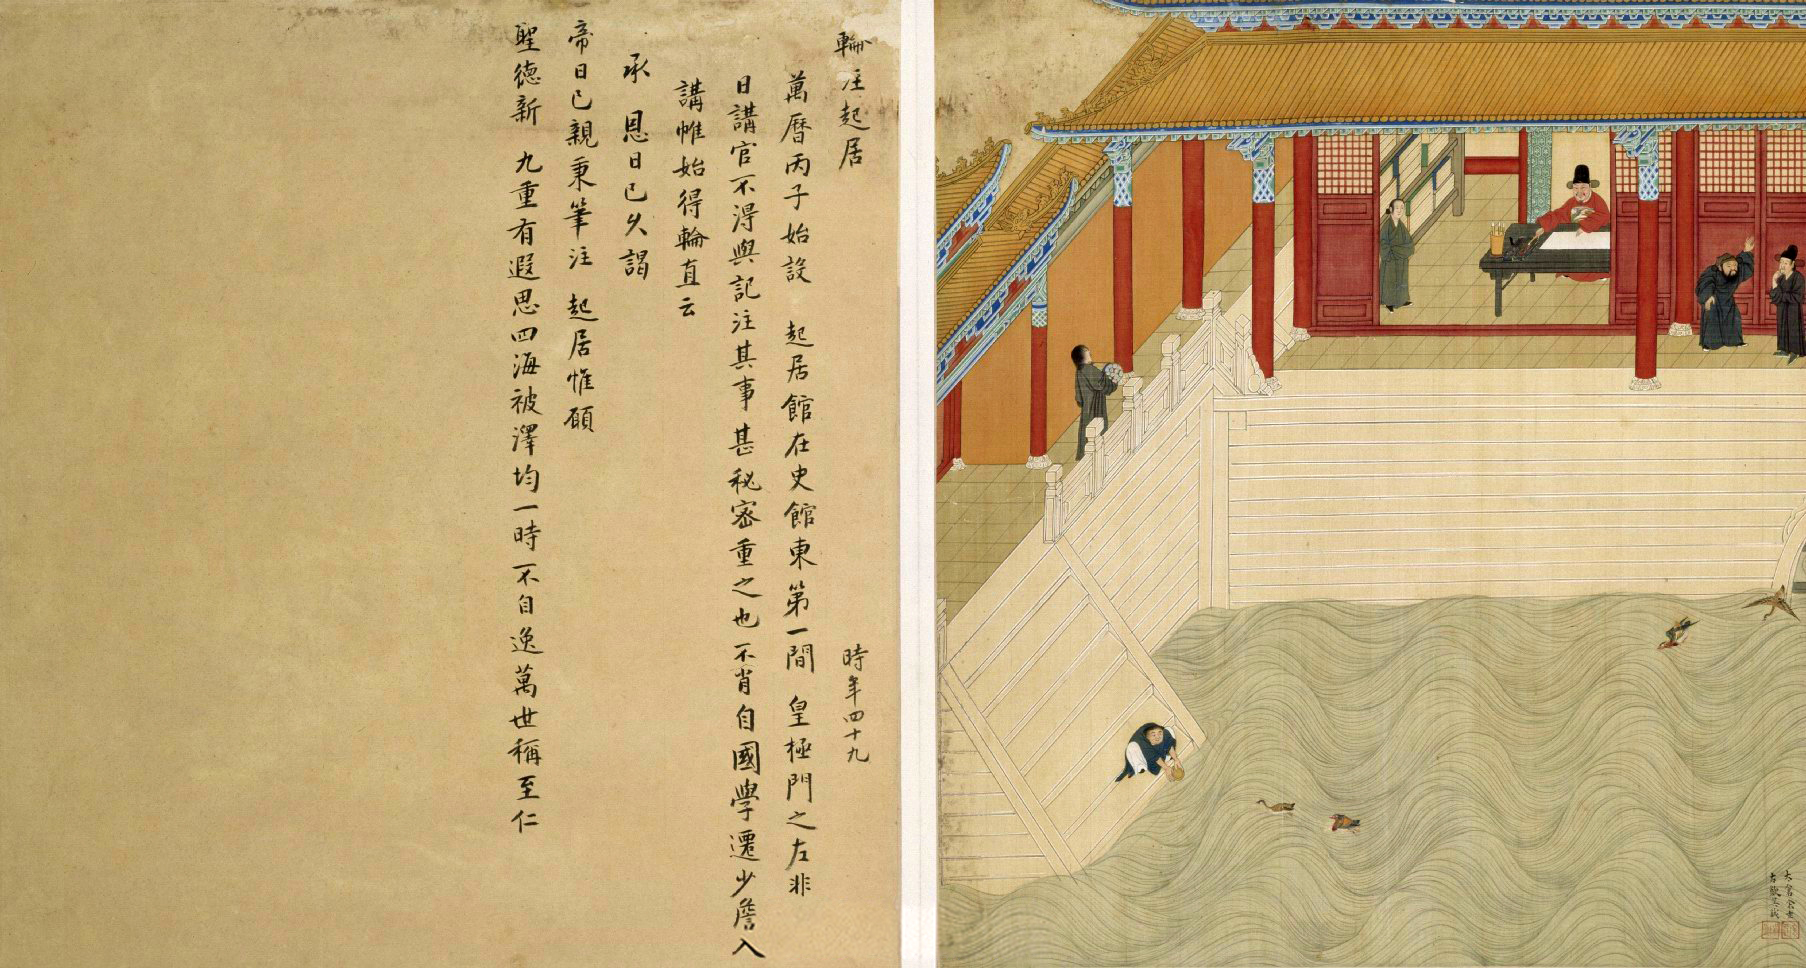 輪注起居
時年四十九
萬曆丙子始設　起居館在史館東第一間　皇極門之左非
日講官不得與記注其事甚秘密重之也不肖自國學遷少詹入
講帷始得輪直云
承　恩日已久謁
帝日已親秉筆注　起居惟願
聖德新　九重有遐思四海被澤均一時不自逸萬世稱至仁